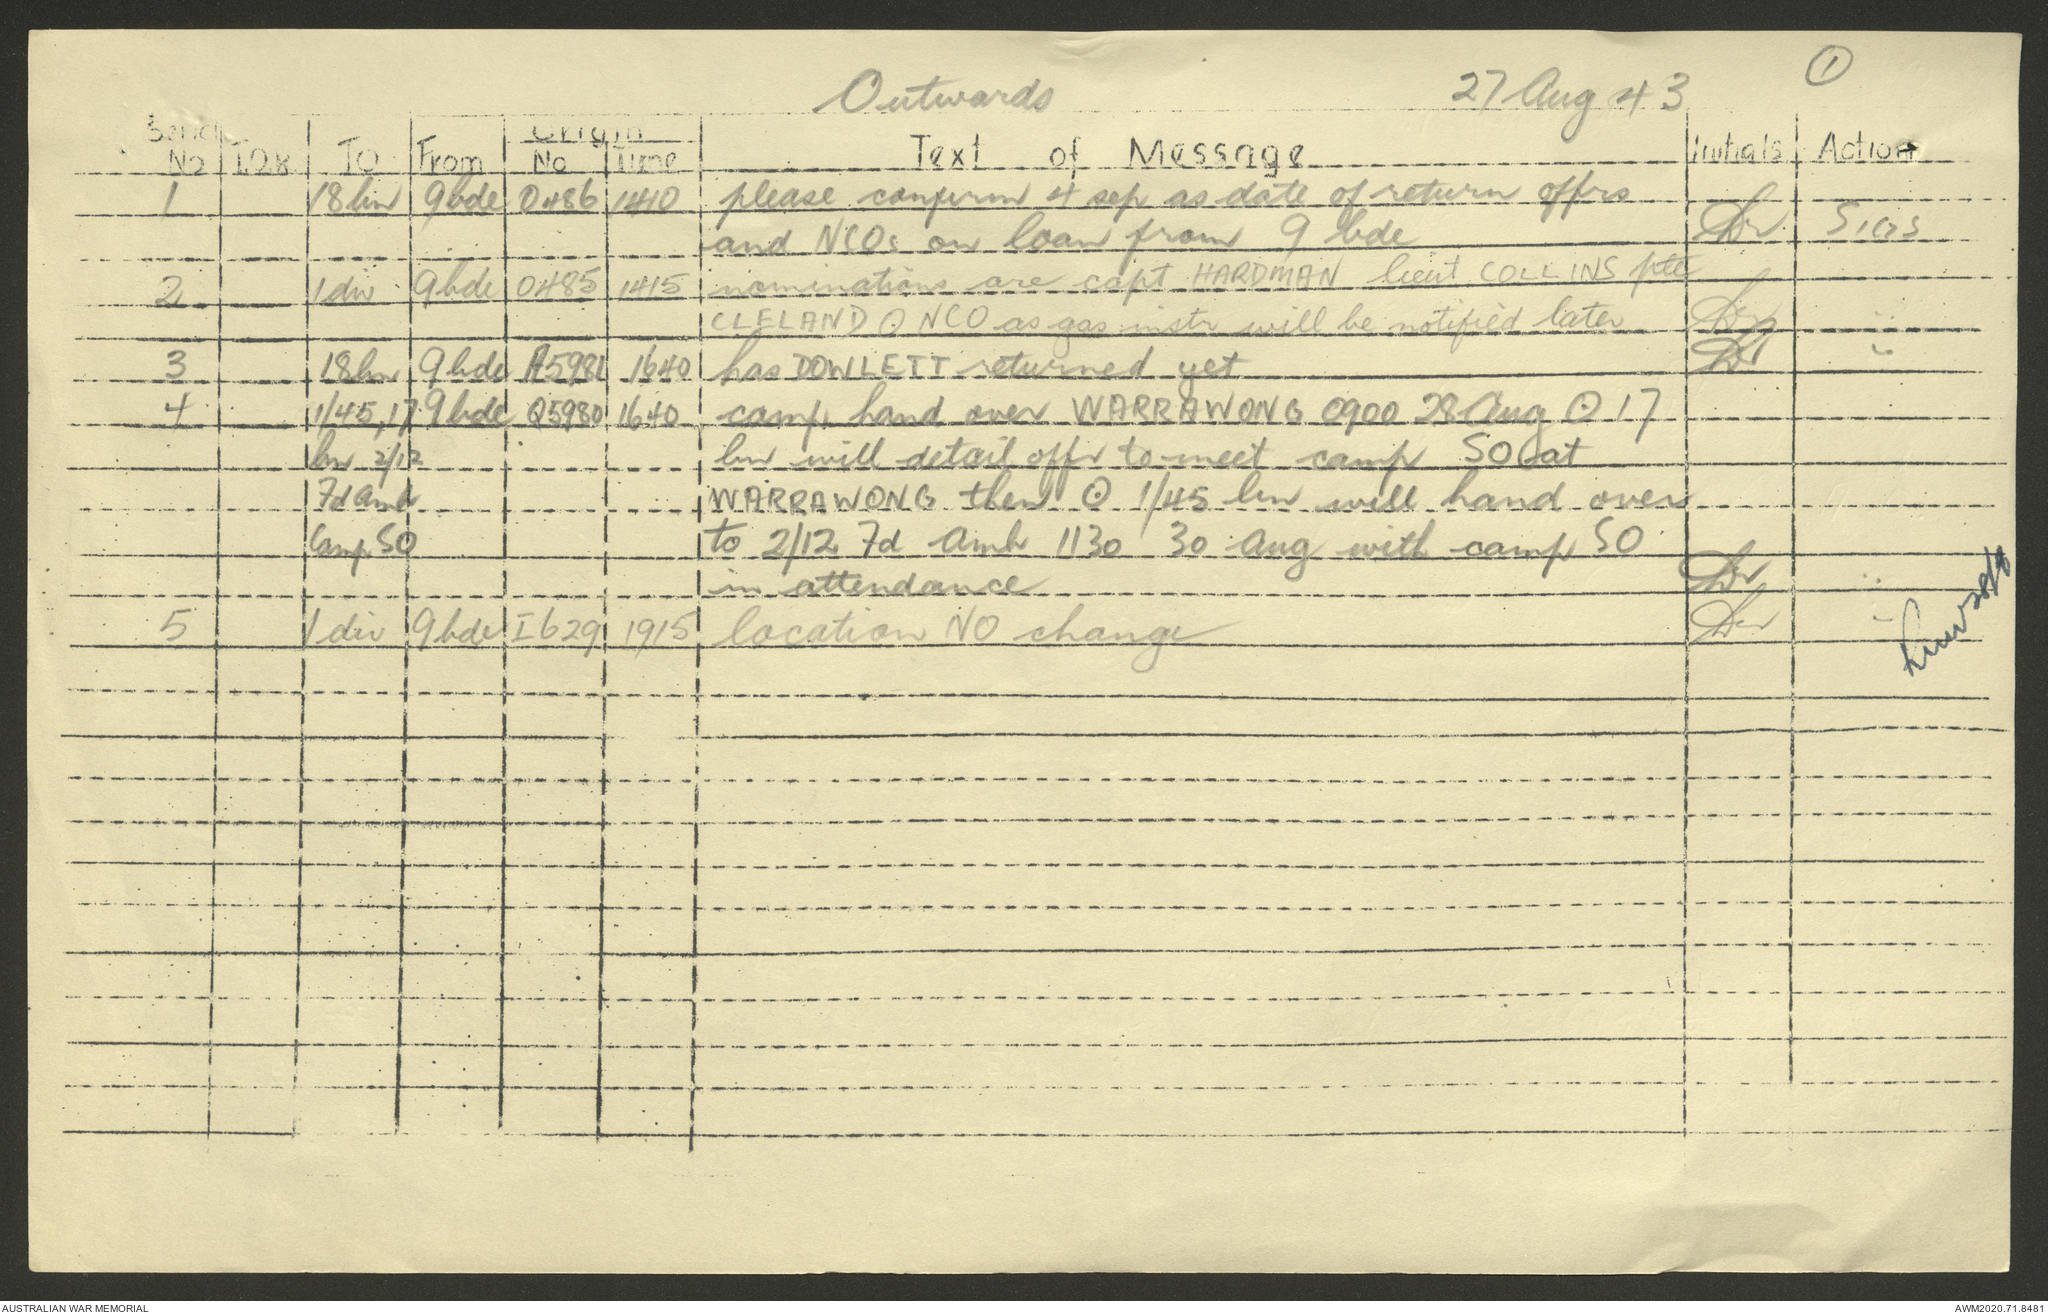 ①
Outwards 27 Aug 43
Serial Origin
No T.O.R. TO From No Time Text of Message Initials Action
1 18 bn 9 bde O486 1410 please confirm 4 sep as date of return offrs
and NCOs on loan from 9 bde Sigs
2 1 div 9 bde O485 1415 nominations are capt HARDMAN lieut COLLINS pte
CLELAND ⊙ NCO as gas instr will be notified later "
3 18 bn 9 bde A5981 1640 has DOWLETT returned yet "
4 1/45, 17 9 bde Q5980 1640 camp hand over WARRAWONG 0900 28 Aug ⊙ 17
bn 2/12 bn will detail offr to meet camp SO at
Fd Amb WARRAWONG then ⊙ 1/45 bn will hand over
Camp SO to 2/12 Fd Amb 1130 30 Aug with camp SO
in attendance "
5 1 div 9 bde I629 1915 location NO change "
AUSTRALIAN WAR MEMORIAL AWM2020.71.8481